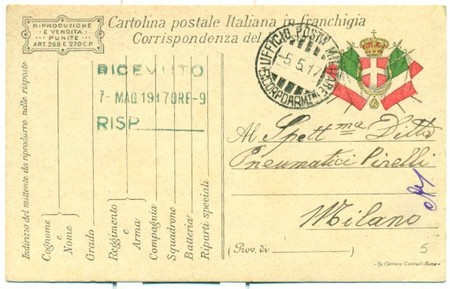 RIPRODUZIONE
E VENDITA
PUNITE
ART. 268 E 270 C.P.
Cartolina postale Italiana in franchigia
Corrispondenza del
UFFICIO POSTA MILITARE
5.5.17
RICEVUTO
7- MAG 1917 ORE-9
RISP.
Al Spett.ma Ditta
Pneumatici Pirelli
Milano
(Prov. di )
5
Indirizzo del mittente da riprodurre nelle risposte
Cognome
e
Nome
Grado
Reggimento
e
Arma
Compagnia
Squadrone
Batteria
Riparti speciali